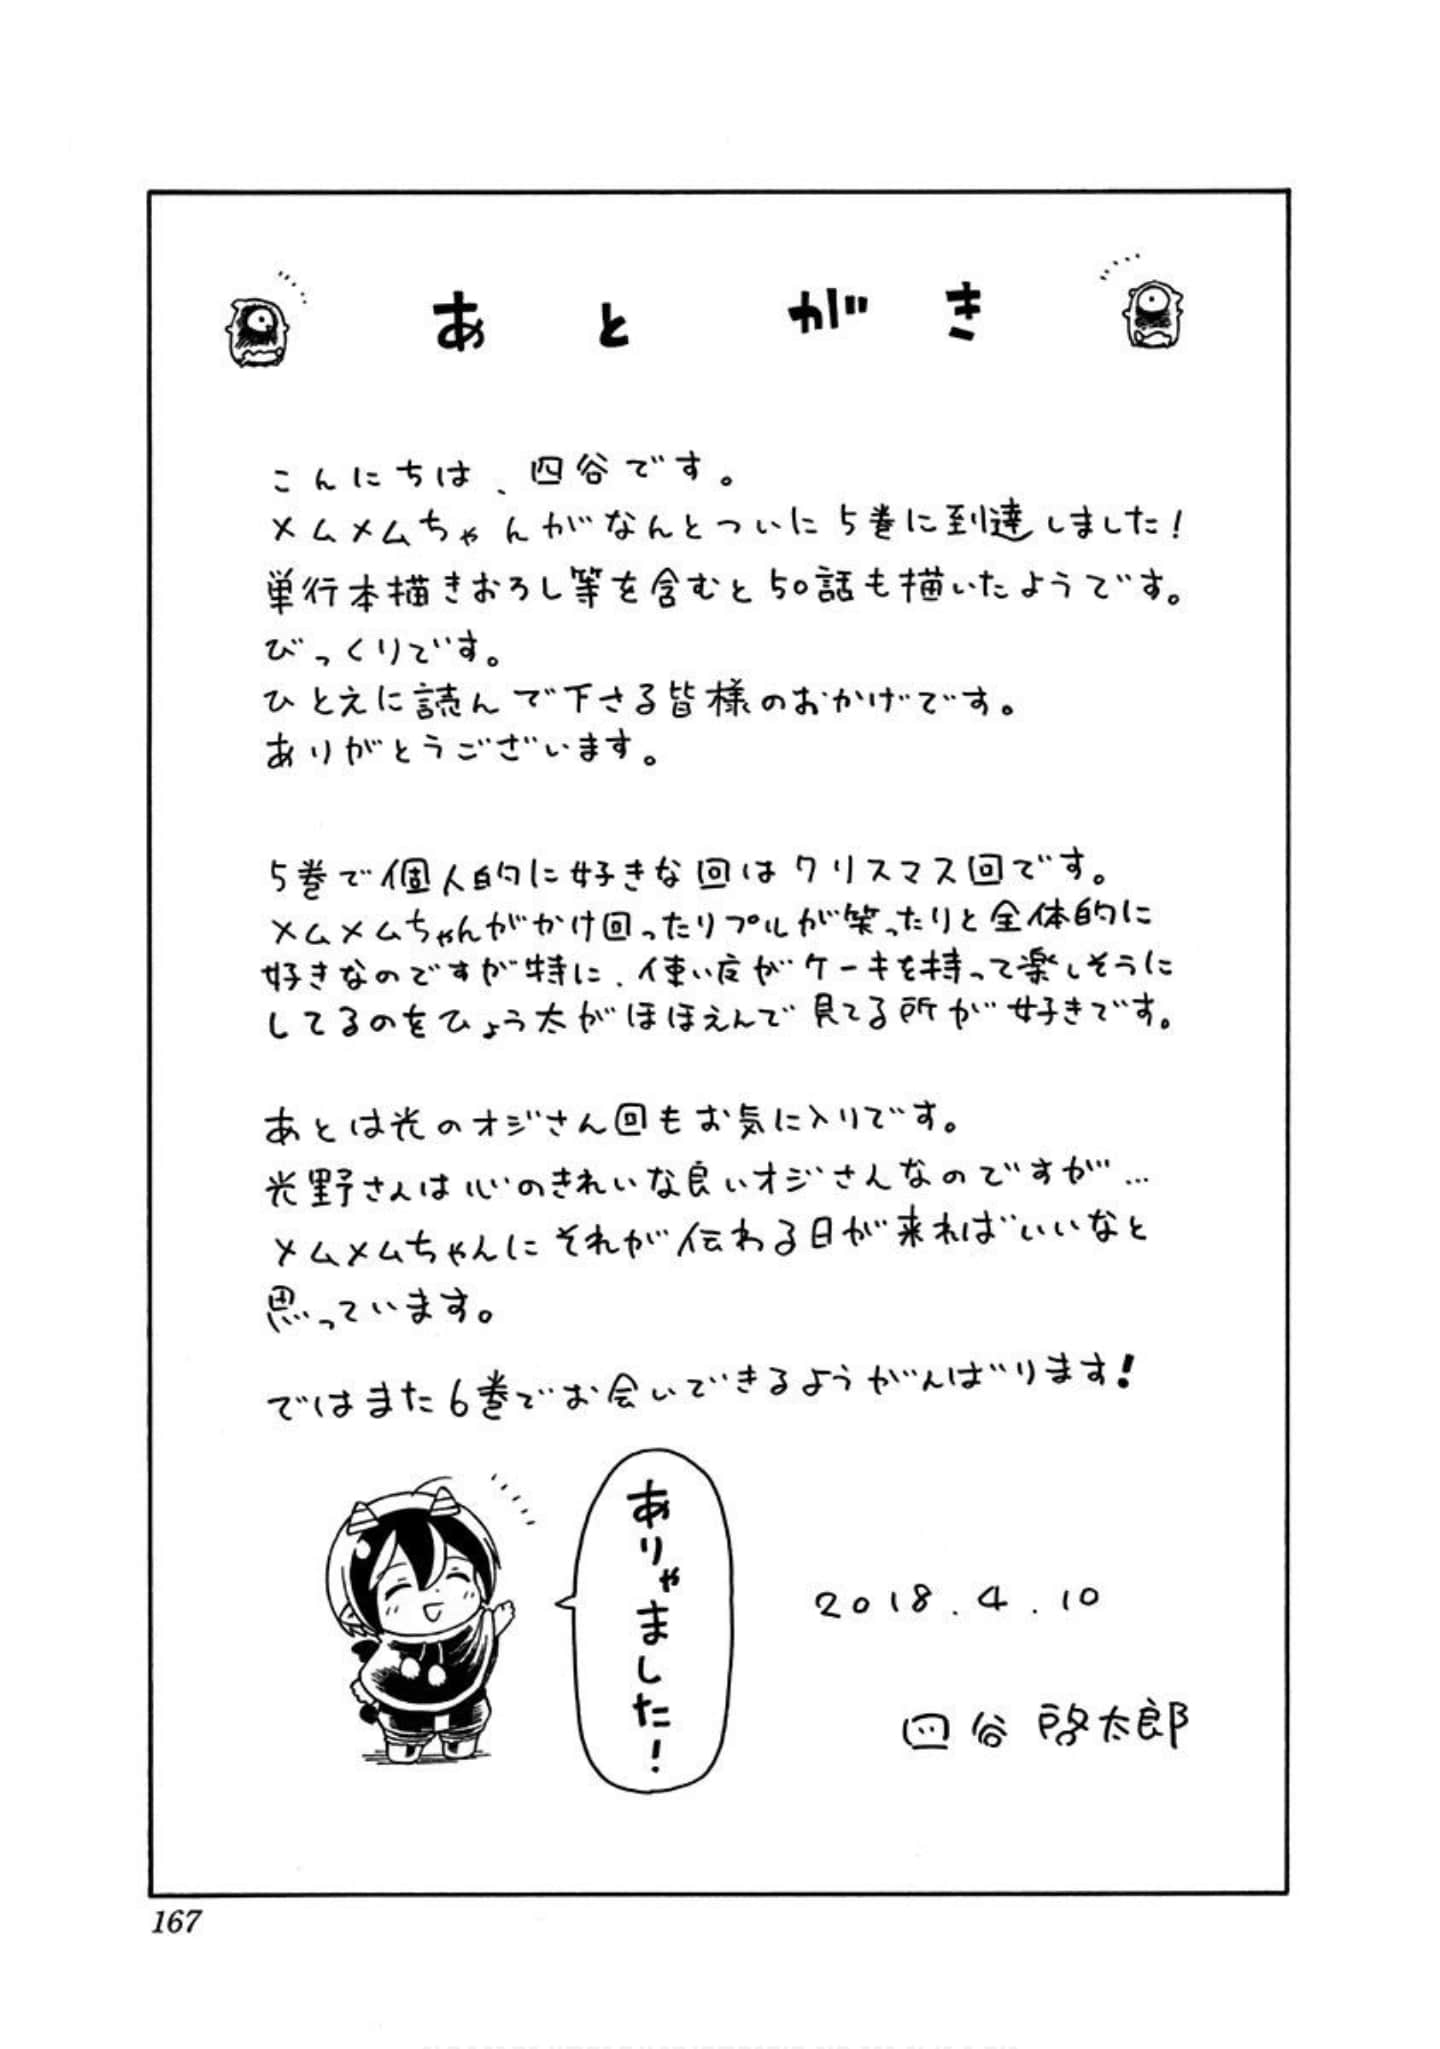 あとがき
こんにちは、四谷です。
メムメムちゃんがなんとついに5巻に到達しました!
単行本描きおろし等を含むと50話も描いたようです。
びっくりです。
ひとえに読んで下さる皆様のおかげです。
ありがとうございます。
5巻で個人的に好きな回はクリスマス回です。
メムメムちゃんがかけ回ったりプルが笑ったりと全体的に
好きなのですが特に、使い魔がケーキを持って楽しそうに
してるのをひょう太がほほえんで見てる所が好きです。
あとは光のオジさん回もお気に入りです。
光野さんは心のきれいな良いオジさんなのですが…
メムメムちゃんにそれが伝わる日が来ればいいなと
思っています。
ではまた6巻でお会いできるようがんばります!
ありゃました!
2018.4.10
四谷啓太郎
167